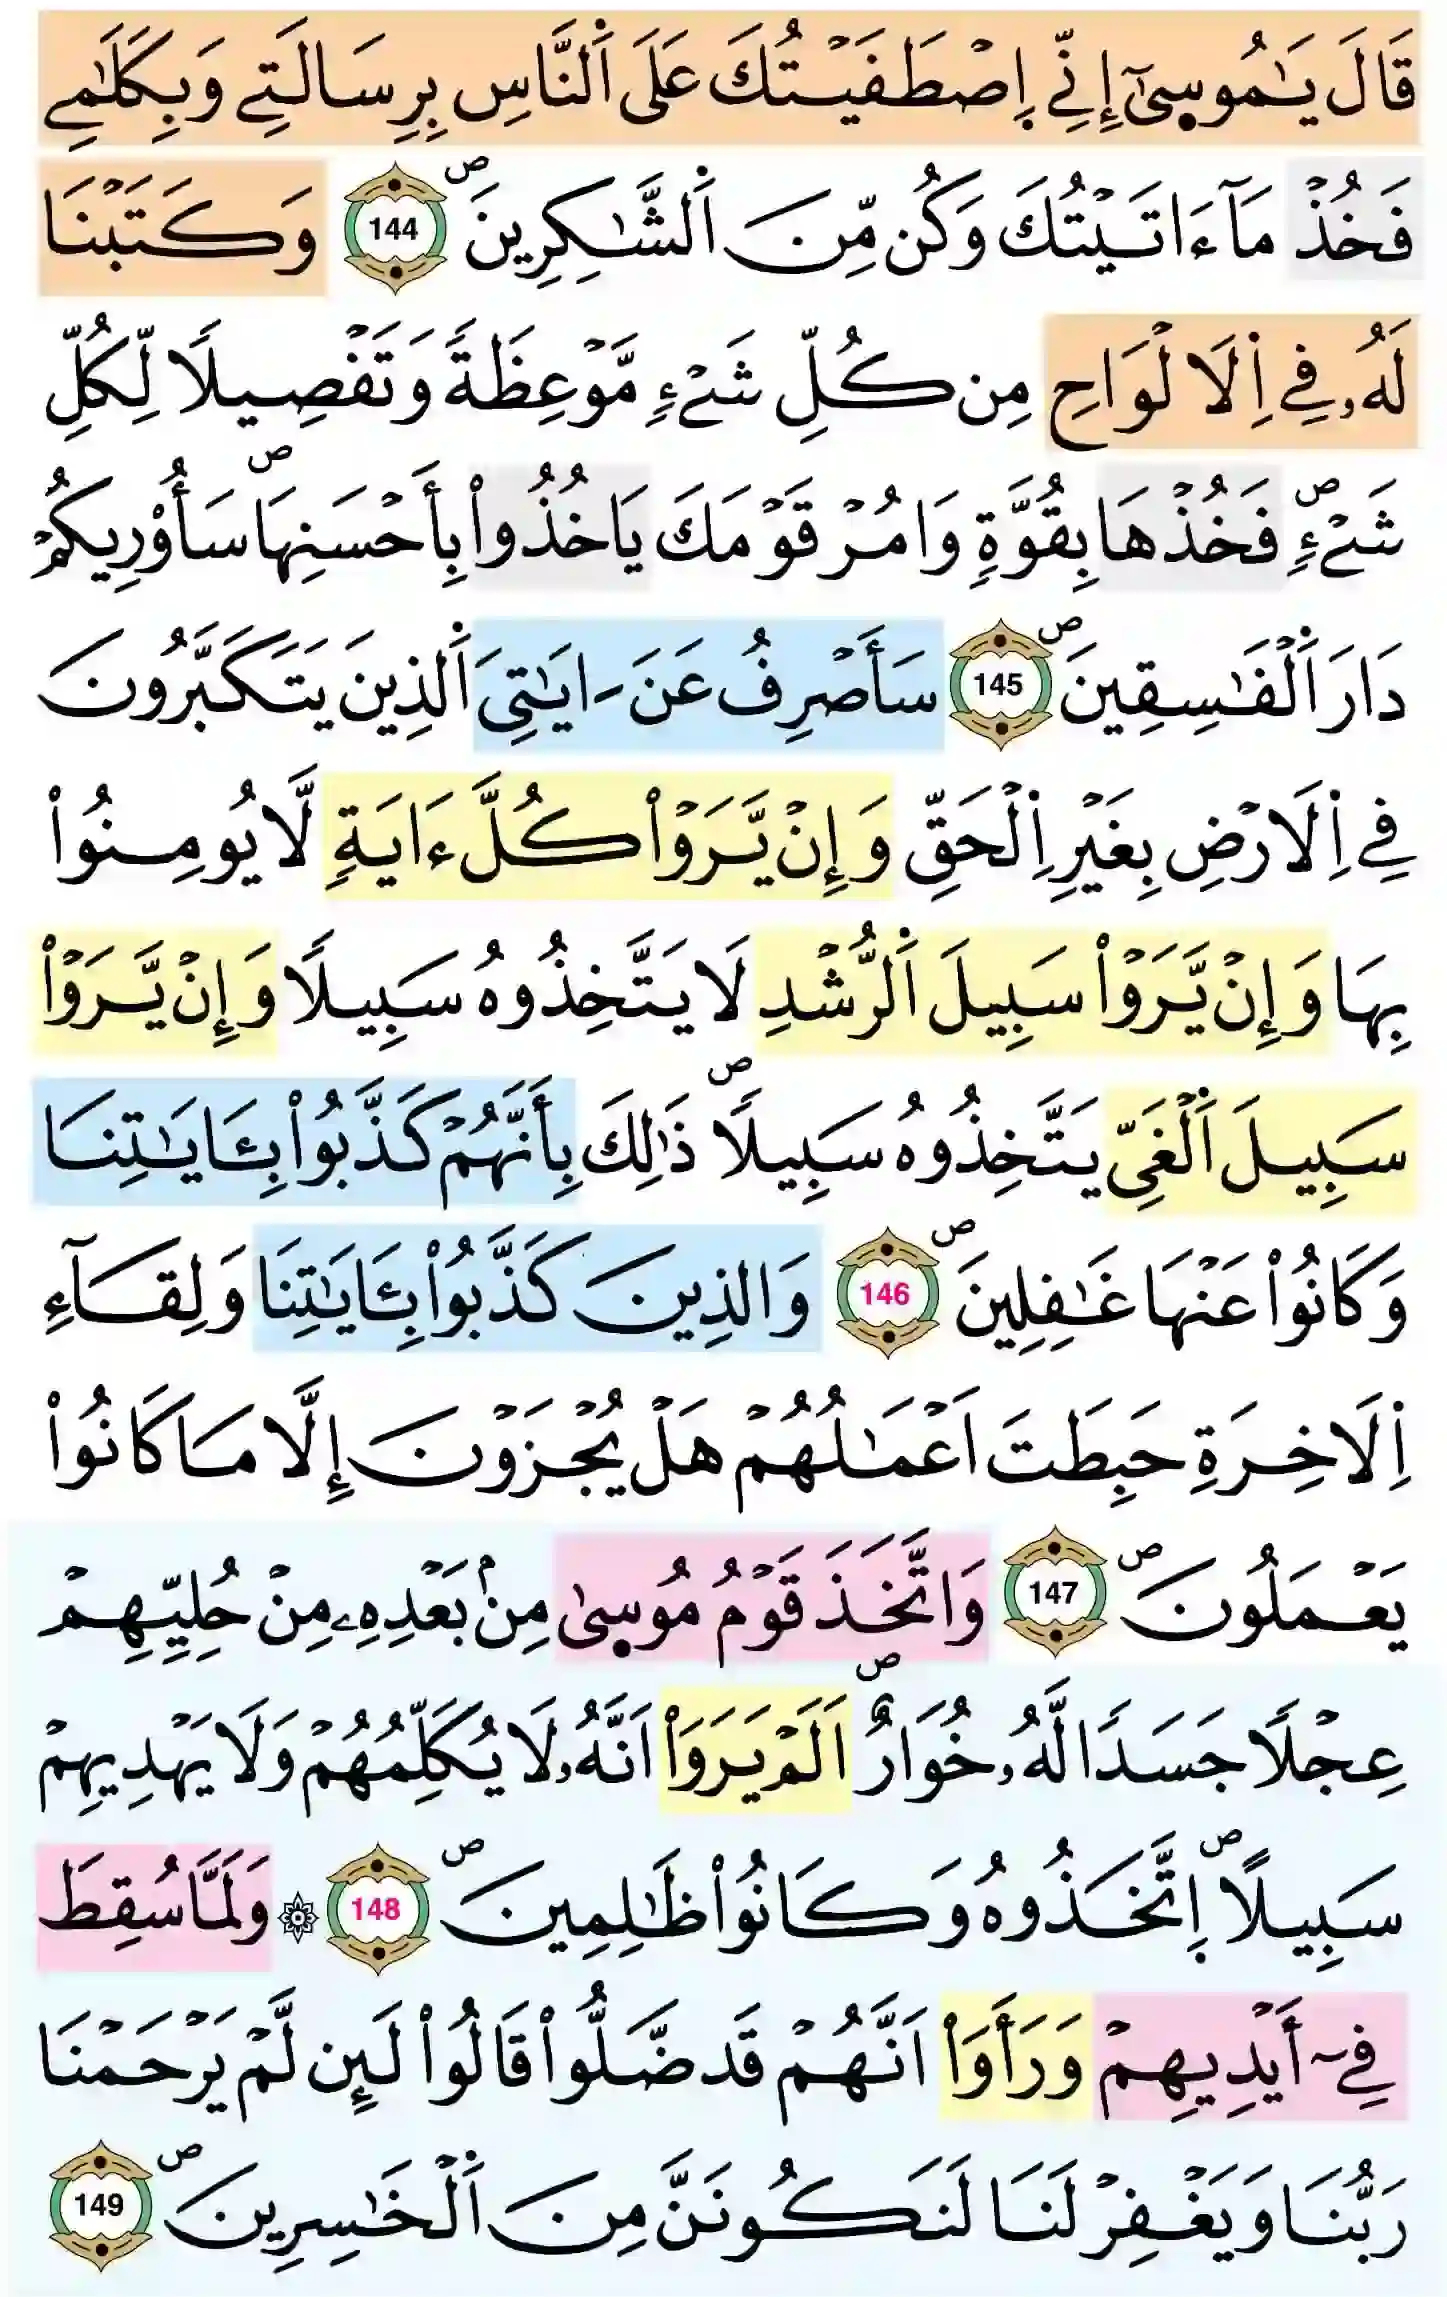 قَالَ يَٰمُوسَىٰٓ إِنِّے اِ۪صْطَفَيْتُكَ عَلَى اَ۬لنَّاسِ بِرِسَالَتِے وَبِكَلَٰمِے
فَخُذْ مَآ ءَاتَيْتُكَ وَكُن مِّنَ اَ۬لشَّٰكِرِينَۖ 144 وَكَتَبْنَا
لَهُۥ فِے اِ۬لَالْوَاحِ مِن كُلِّ شَےْءٖ مَّوْعِظَةٗ وَتَفْصِيلاٗ لِّكُلِّ
شَےْءٖۖ فَخُذْهَا بِقُوَّةٖ وَامُرْ قَوْمَكَ يَاخُذُواْ بِأَحْسَنِهَاۖ سَأُوْرِيكُمْ
دَارَ اَ۬لْفَٰسِقِينَۖ 145 سَأَصْرِفُ عَنَ ءَايَٰتِىَ اَ۬لذِينَ يَتَكَبَّرُونَ
فِے اِ۬لَارْضِ بِغَيْرِ اِ۬لْحَقِّ وَإِنْ يَّرَوْاْ كُلَّ ءَايَةٖ لَّا يُومِنُواْ
بِهَا وَإِنْ يَّرَوْاْ سَبِيلَ اَ۬لرُّشْدِ لَا يَتَّخِذُوهُ سَبِيلاٗ وَإِنْ يَّرَوْاْ
سَبِيلَ اَ۬لْغَىِّ يَتَّخِذُوهُ سَبِيلاٗۖ ذَٰلِكَ بِأَنَّهُمْ كَذَّبُواْ بِـَٔايَٰتِنَا
وَكَانُواْ عَنْهَا غَٰفِلِينَۖ 146 وَالذِينَ كَذَّبُواْ بِـَٔايَٰتِنَا وَلِقَآءِ
اِ۬لَاخِرَةِ حَبِطَتَ اَعْمَٰلُهُمْ هَلْ يُجْزَوْنَ إِلَّا مَا كَانُواْ
يَعْمَلُونَۖ 147 وَاتَّخَذَ قَوْمُ مُوسَىٰ مِنۢ بَعْدِهِۦ مِنْ حُلِيِّهِمْ
عِجْلاٗ جَسَداٗ لَّهُۥ خُوَارٌۖ اَلَمْ يَرَوَاْ اَنَّهُۥ لَا يُكَلِّمُهُمْ وَلَا يَهْدِيهِمْ
سَبِيلاًۖ اِ۪تَّخَذُوهُ وَكَانُواْ ظَٰلِمِينَۖ 148 ۞ وَلَمَّا سُقِطَ
فِےٓ أَيْدِيهِمْ وَرَأَوَاْ اَنَّهُمْ قَد ضَّلُّواْ قَالُواْ لَئِن لَّمْ يَرْحَمْنَا
رَبُّنَا وَيَغْفِرْ لَنَا لَنَكُونَنَّ مِنَ اَ۬لْخَٰسِرِينَۖ 149